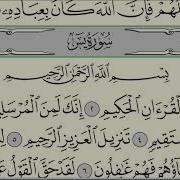 فَإِنَّ ٱللَّهَ كَانَ بِعِبَادِهِۦ
سُورَةُ يسٓ
بِسْمِ ٱللَّهِ ٱلرَّحْمَٰنِ ٱلرَّحِيمِ
ٱلْقُرْءَانِ ٱلْحَكِيمِ ٢ إِنَّكَ لَمِنَ ٱلْمُرْسَلِي
سْتَقِيمٍ ٤ تَنزِيلَ ٱلْعَزِيزِ ٱلرَّحِيمِ ٥
اؤُهُمْ فَهُمْ غَٰفِلُونَ ٦ لَقَدْ حَقَّ ٱلْقَوْلُ